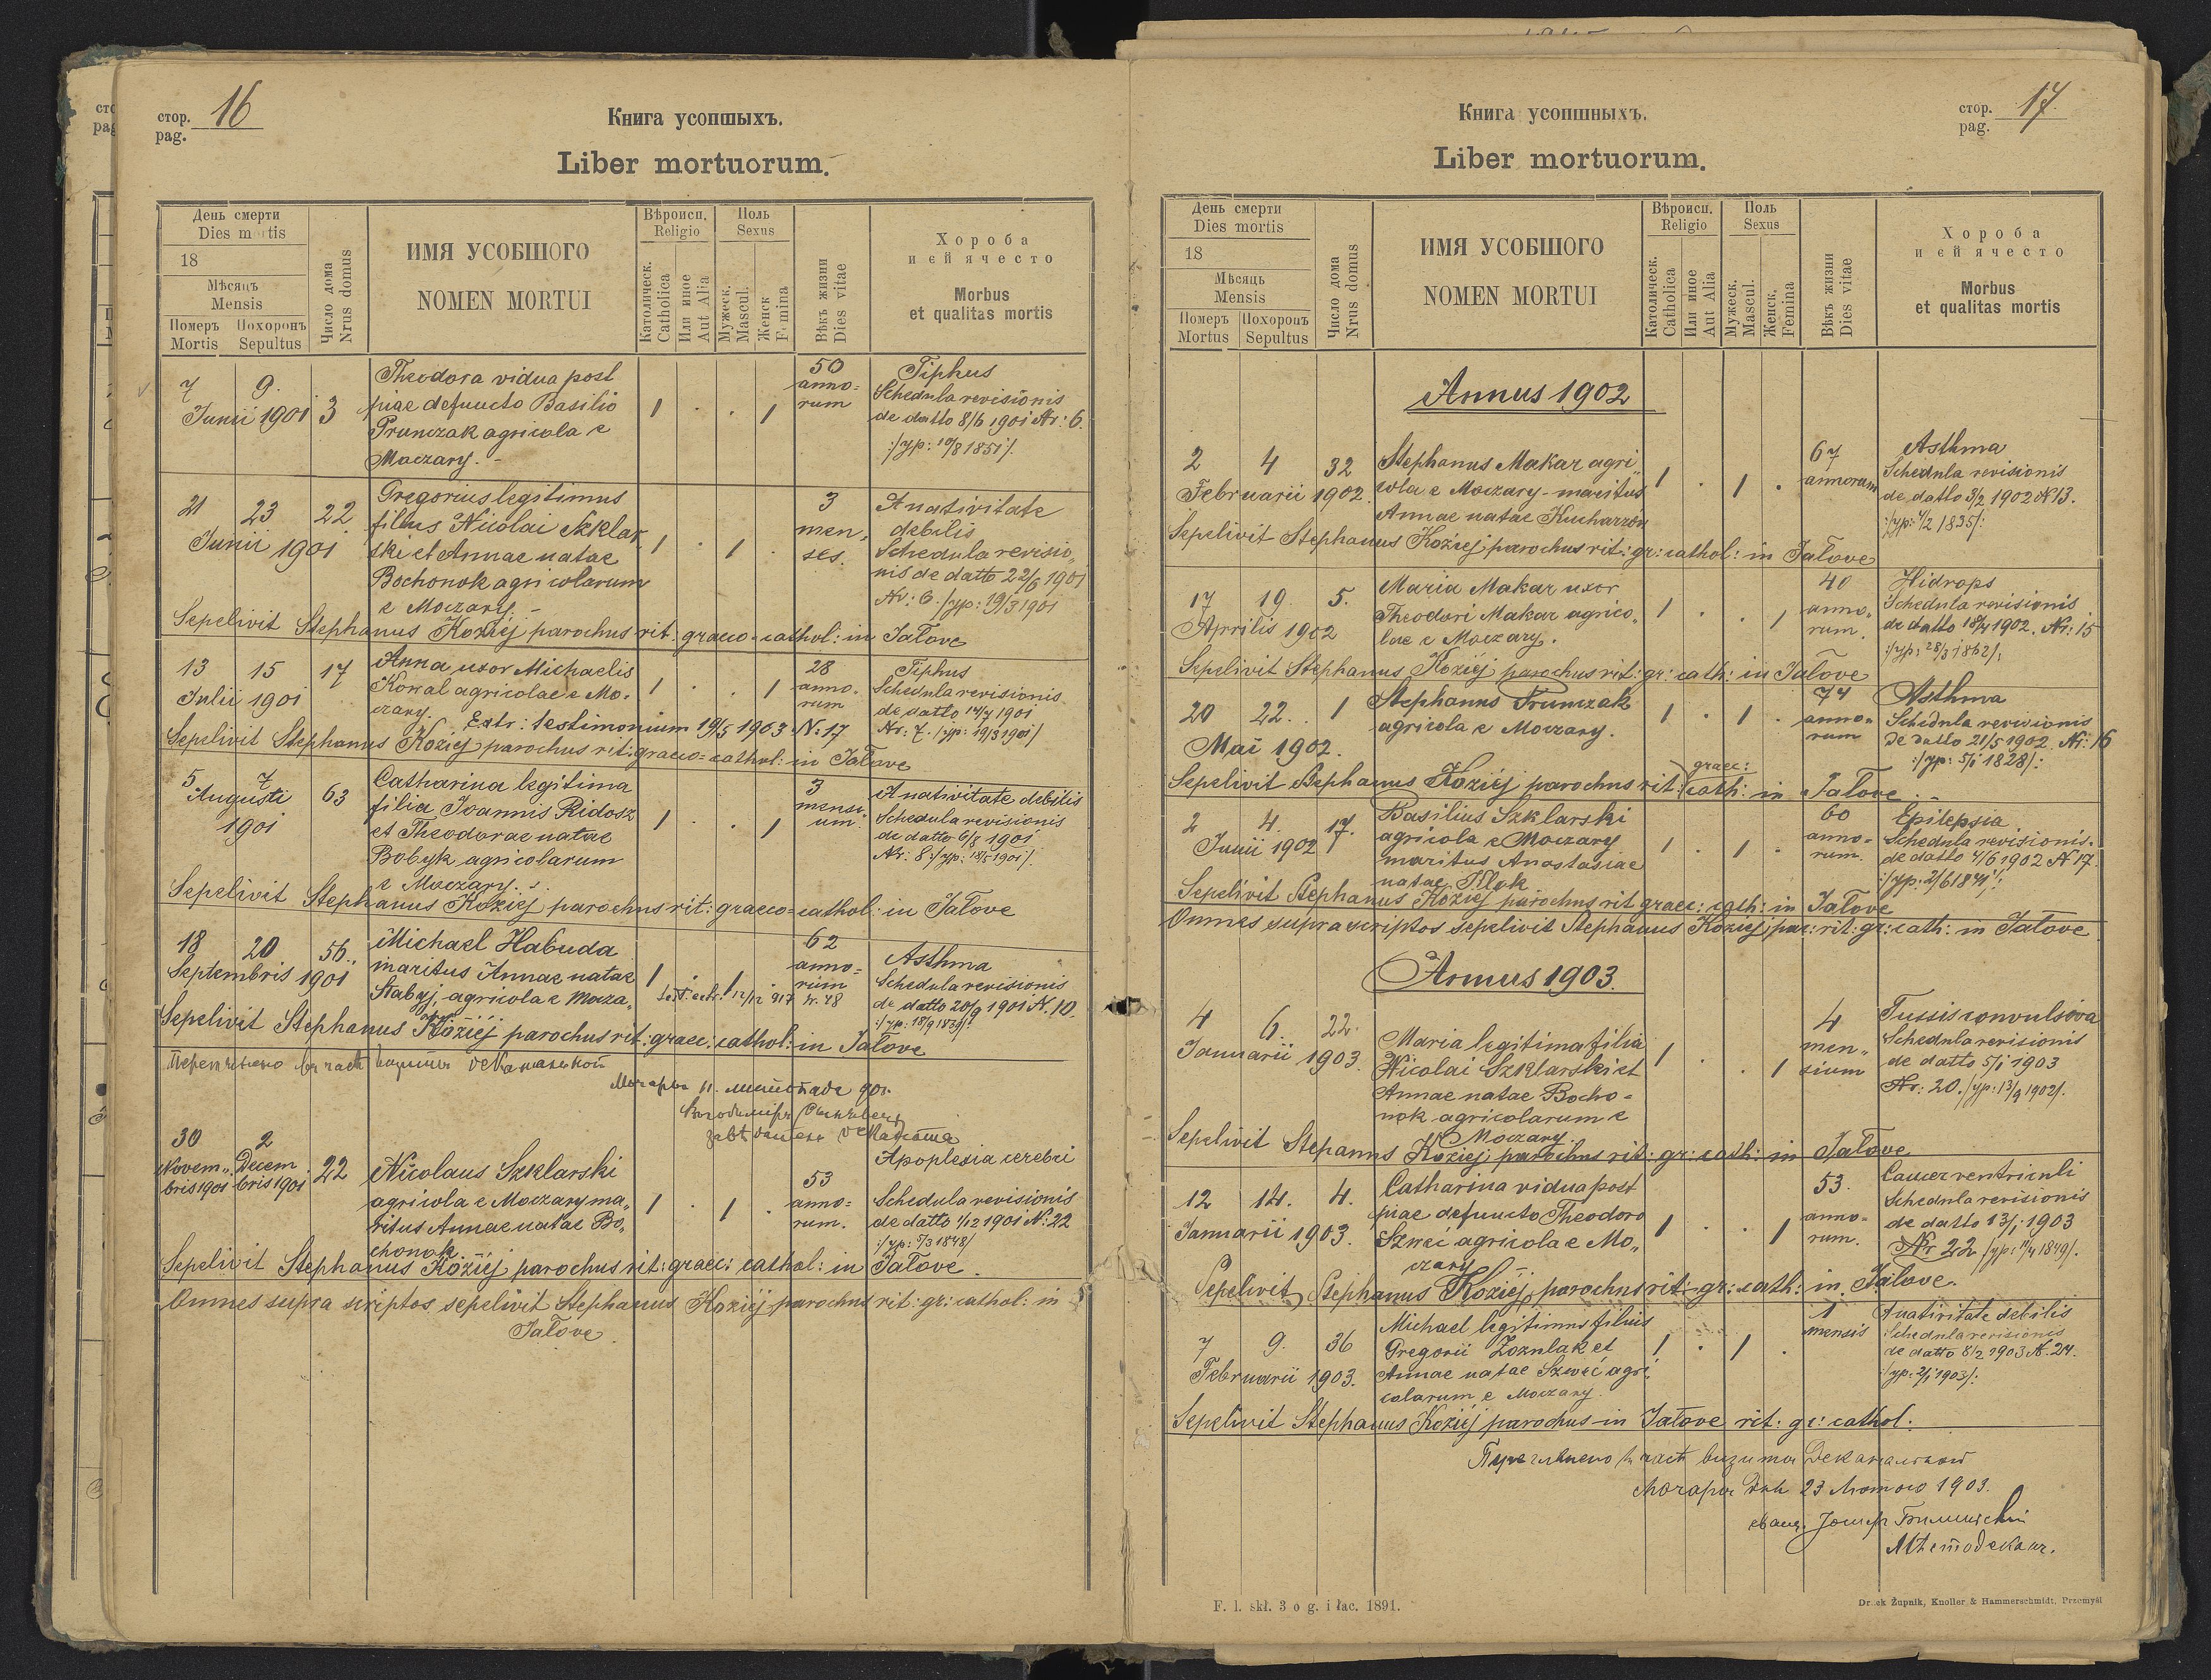 стор. 16
pag.
Книга усопшыхъ.
Liber mortuorum.
День смерти
Dies mortis
18
Мѣсяцъ
Mensis
Померъ Похоронъ
Mortis Sepultus
Число дома
Nrus domus
ИМЯ УСОБШОГО
NOMEN MORTUI
Вѣроисп.
Religio
Католическ.
Catholica
Или иное
Aut Alia
Поль
Sexus
Мужеск.
Mascul.
Женск
Femina
Вѣкъ жизни
Dies vitae
Хороба
и ей ячесто
Morbus
et qualitas mortis
7 9.
Junii 1901 3
Theodora vidua post
piae defuncto Basilio
Prunczak agricola e
Moczary. -
1 . . 1
50
anno=
rum
Tiphus
Schedula revisionis
de datto 8/6 1901 Nr: 6.
:/yp: 10/8 1851/.
21 23 22
Junii 1901
Gregorius legitimus
filius Nicolai Szklar
ski et Annae natae
Bochonok agricolarum
e Moczary. -
1 . 1 .
3
men,
ses.
A nativitate
debilis
Schedula revisio„
nis de datto 22/6 1901
Nr: 6. /yp: 19/3 1901
Sepelivit Stephanus Koziej parochus rit. graeco=cathol: in Jałove
13 15 17
Julii 1901
Anna uxor Michaelis
Kowal agricolae e Mo.
czary.
Extr: testimonium 19/5 1903 N: 17
1 . . 1
28
anno.
rum
Tiphus
Schedula revisionis
de datto 14/7 1901
Nr: 7. /yp: 19/3 1901/
Sepelivit Stephanus Koziej parochus rit: graeco=cathol: in Jałove
5 7 63
Augusti
1901
Catharina legitima
filia Joannis Ridosz
et Theodorae natae
Bobyk agricolarum
e Moczary. -.
1 . . 1
3
mensi
um.
A nativitate debilis
Schedula revisionis
de datto 6/8 1901
Nr: 8 :/yp: 18/5 1901/.
Sepelivit Stephanus Koziej parochus rit: graeco=cathol: in Jałove
18 20 56.
Septembris 1901
Michael Habuda
maritus Annae natae
Stabyj, agricola e Mocza„
1 . 1 .
Test: extr. 12/12 917 Nr. 48
62
anno=
rum
Asthma
Schedula revisionis
de datto 20/9 1901 N. 10.
Sepelivit Stephanus Koziej parochus rit: graec: cathol: in Jałove
30 2
Novem„ Decem 22
bris 1901 bris 1901
Nicolaus Szklarski
agricola e Moczary ma„
ritus Annae natae Bo„
chonok
1 . 1 .
53
anno=
rum.
Apoplexia cerebri
Schedula revisionis
de datto 1/12 1901 N: 22
:/yp: 5/3 1848/
Sepelivit Stephanus Koziej parochus rit: graec: cathol: in Jałove.
Omnes supra scriptos sepelivit Stephanus Koziej parochus rit: gr: cathol: in
Jałove.
Книга усопшныхъ.
стор. 17.
pag.
Liber mortuorum.
День смерти
Dies mortis
18
Мѣсяцъ
Mensis
Померъ Похоронъ
Mortus Sepultus
Число дома
Nrus domus
ИМЯ УСОБШОГО
NOMEN MORTUI
Вѣроисп.
Religio
Католическ.
Catholica
Или иное
Aut Alia
Поль
Sexus
Мужеск.
Mascul.
Женск.
Femina
Вѣкъ жизни
Dies vitae
Хороба
и ей ячесто
Morbus
et qualitas mortis
Annus 1902
2 4 32
Februarii 1902.
Stephanus Makar agri„
cola e Moczary - maritus
Annae natae Kucharzon
1 . 1 .
67
annorum
Asthma
Schedula revisionis
de datto 3/2 1902 N 13.
:/yp: 4/2 1835/:
Sepelivit Stephanus Koziej parochus rit: gr: cathol: in Jałove
17 19. 5.
Aprilis 1902
Maria Makar uxor
Theodori Makar agrico„
lae e Moczary.
1 . . 1
40
anno„
rum.
Hidrops
Schedula revisionis
de datto 18/4 1902. Nr: 15
:/yp: 28/3 1862/:
Sepelivit Stephanus Koziej parochus rit: gr: cath: in Jałove
20 22. 1
Mai 1902.
Stephanus Prunczak
agricola e Moczary.
1 . 1 .
74
anno=
rum
Asthma
Schedula revisionis
de datto 21/5 1902. Nr: 16
:/yp: 5/1 1828/:
Sepelivit Stephanus Koziej parochus rit: graec: cath: in Jałove. -
2 4. 17.
Junii 1902
Basilius Szklarski
agricola e Moczary
maritus Anastasiae
natae Illok
1 . 1 .
60
anno=
rum.
Epilepsia
Schedula revisionis.
de datto 4/6 1902 N 17.
Sepelivit Stephanus Koziej parochus rit graec: cath: in Jałove
Omnes suprascriptos sepelivit Stephanus Koziej par: rit: gr: cath: in Jałove
Annus 1903.
4 6. 22.
Januarii 1903.
Maria legitima filia
Nicolai Szklarski et
Annae natae Bocho=
nok agricolarum e
Moczary
1 . . 1
4
men„
sium
Tussis convulsiva
Schedula revisionis
de datto 5/1 1903
Nr: 20. /yp: 13/9 1902/.
Sepelivit Stepanus Koziej parochus rit: gr: cath: in Jałove
12 14. 4.
Januarii 1903.
Catharina vidua post
piae defuncto Theodoro
Szweć agricola e Mo„
czary
1 . . 1
53.
anno=
rum.
Cancer ventriculi
Schedula revisionis
de datto 13/1 1903
Nr 22 /yp: 11/4 1849/.
Sepelivit Stephanus Koziej, parochus rit: gr: cath: in Jałove.
7 9. 36
Februarii 1903.
Michael legitimus filius
Gregorii Zoznlak et
Annae natae Szweć agri„
colarum e Moczary.
1 . 1 .
1
mensis
A nativitate debilis
Schedula revisionis
de datto 8/2 1903 N. 24.
:/yp: 2/1 1903/:
Sepelivit Stephanus Koziej parochus in Jałove rit: gr: cathol.
визита Деканальной
дня 23 Лютого 1903.
F. l. skł. 3 o g. i łac. 1891.
Druck Żupnik, Knoller & Hammerschmidt, Przemyśl